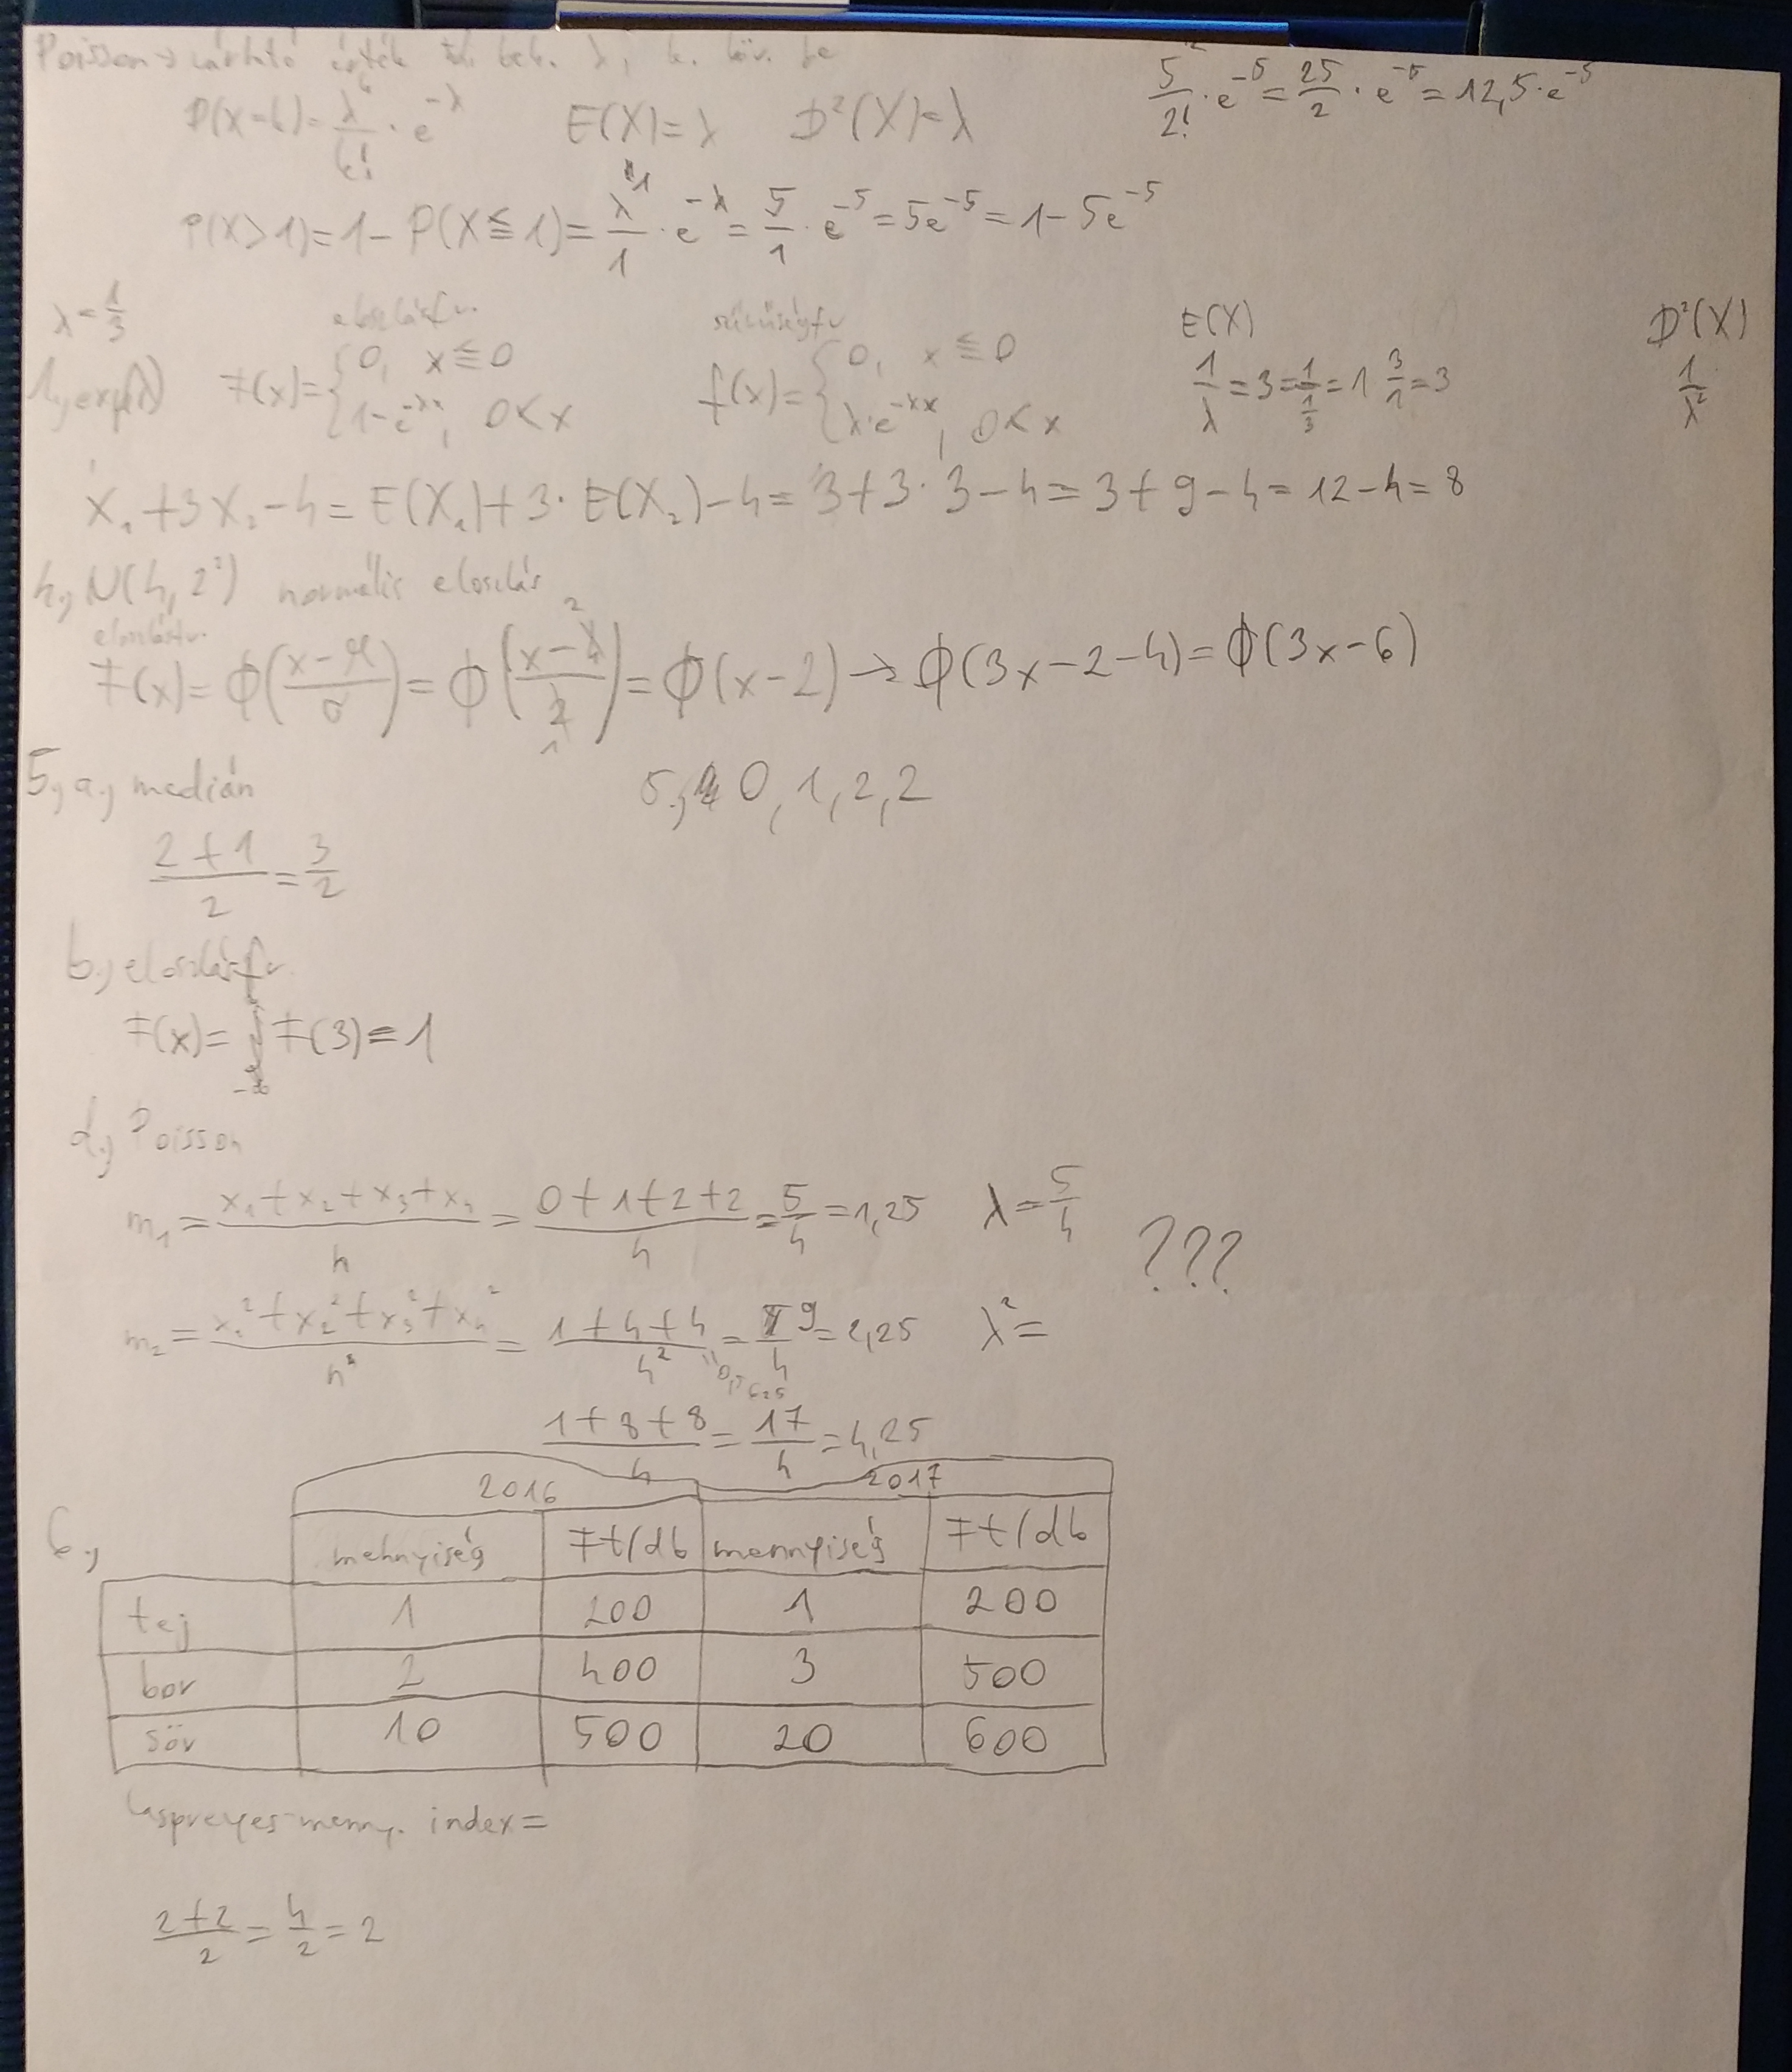 Poisson → várható érték
5²/2! · e^-5 = 25/2 · e^-5 = 12,5 · e^-5
P(X=k) = λ^k/k! · e^-λ   E(X) = λ   D²(X) = λ
P(X>1) = 1 - P(X ≦ 1) = λ^1/1 · e^-λ = 5/1 · e^-5 = 5e^-5 = 1 - 5e^-5
λ = 1/3   eloszlásfv.   sűrűségfv   E(X)   D²(X)
1., exp(λ)   F(x) = { 0, x ≦ 0   f(x) = { 0, x ≦ 0   1/λ = 3 = 1/(1/3) = 1 3/1 = 3   1/λ²
1-e^-λx, 0<x   λ·e^-λx, 0<x
X₁ + 3X₂ - 4 = E(X₁) + 3 · E(X₂) - 4 = 3 + 3 · 3 - 4 = 3 + 9 - 4 = 12 - 4 = 8
4., N(4, 2²) normális eloszlás
eloszlásfv.
F(x) = ϕ((x-μ)/σ) = ϕ((x-4)/2) = ϕ(x-2) → ϕ(3x-2-4) = ϕ(3x-6)
5., a., medián   5., 0, 1, 2, 2
(2+1)/2 = 3/2
b., eloszlásfv.
F(x) = ∫ F(3) = 1
-∞
d., Poisson
m₁ = (x₁+x₂+x₃+x₄)/n = (0+1+2+2)/4 = 5/4 = 1,25   λ = 5/4   ???
m₂ = (x₁²+x₂²+x₃²+x₄²)/n² = (1+4+4)/4² = 9/4 = 2,25   λ² =
0,5625
(1+8+8)/4 = 17/4 = 4,25
2016   2017
6.,   mennyiség   Ft/db   mennyiség   Ft/db
tej   1   200   1   200
bor   2   400   3   500
sör   10   500   20   600
Laspreyes-menny. index =
(2+2)/2 = 4/2 = 2